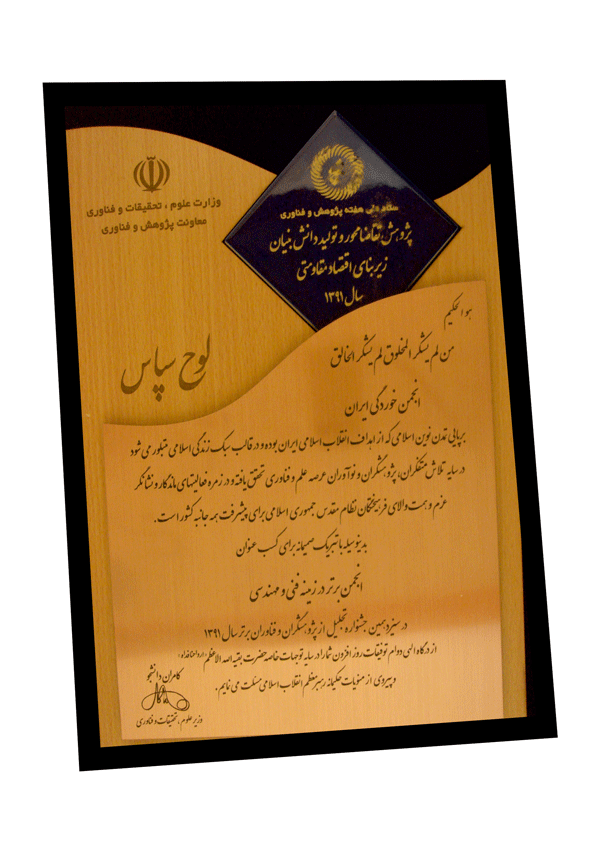 وزارت علوم ، تحقیقات و فناوری
معاونت پژوهش و فناوری
ستاد ملی هفته پژوهش و فناوری
پژوهش تقاضا محور و تولید دانش بنیان
زیربنای اقتصاد مقاومتی
سال ۱۳۹۱
هو الحکیم
من لم یشکر المخلوق لم یشکر الخالق
لوح سپاس
انجمن خوردگی ایران
برپایی تمدن نوین اسلامی که از اهداف انقلاب اسلامی ایران بوده و در قالب سبک زندگی اسلامی متبلور می شود
در سایه تلاش متفکران، پژوهشگران و نوآوران عرصه علم و فناوری تحقق یافته و در زمره فعالیتهای ماندگار و نشانگر
عزم و همت والای فرهیختگان نظام مقدس جمهوری اسلامی برای پیشرفت همه جانبه کشور است.
بدینوسیله با تبریک صمیمانه برای کسب عنوان
انجمن برتر در زمینه فنی و مهندسی
در سیزدهمین جشنواره تجلیل از پژوهشگران و فناوران برتر سال ۱۳۹۱
از درگاه الهی دوام توفیقات روز افزون شما را در سایه توجهات خاصه حضرت بقیه الله الاعظم (ارواحنا فداه)
و پیروی از منویات حکیمانه رهبر معظم انقلاب اسلامی مسئلت می نمایم.
کامران دانشجو
وزیر علوم ، تحقیقات و فناوری